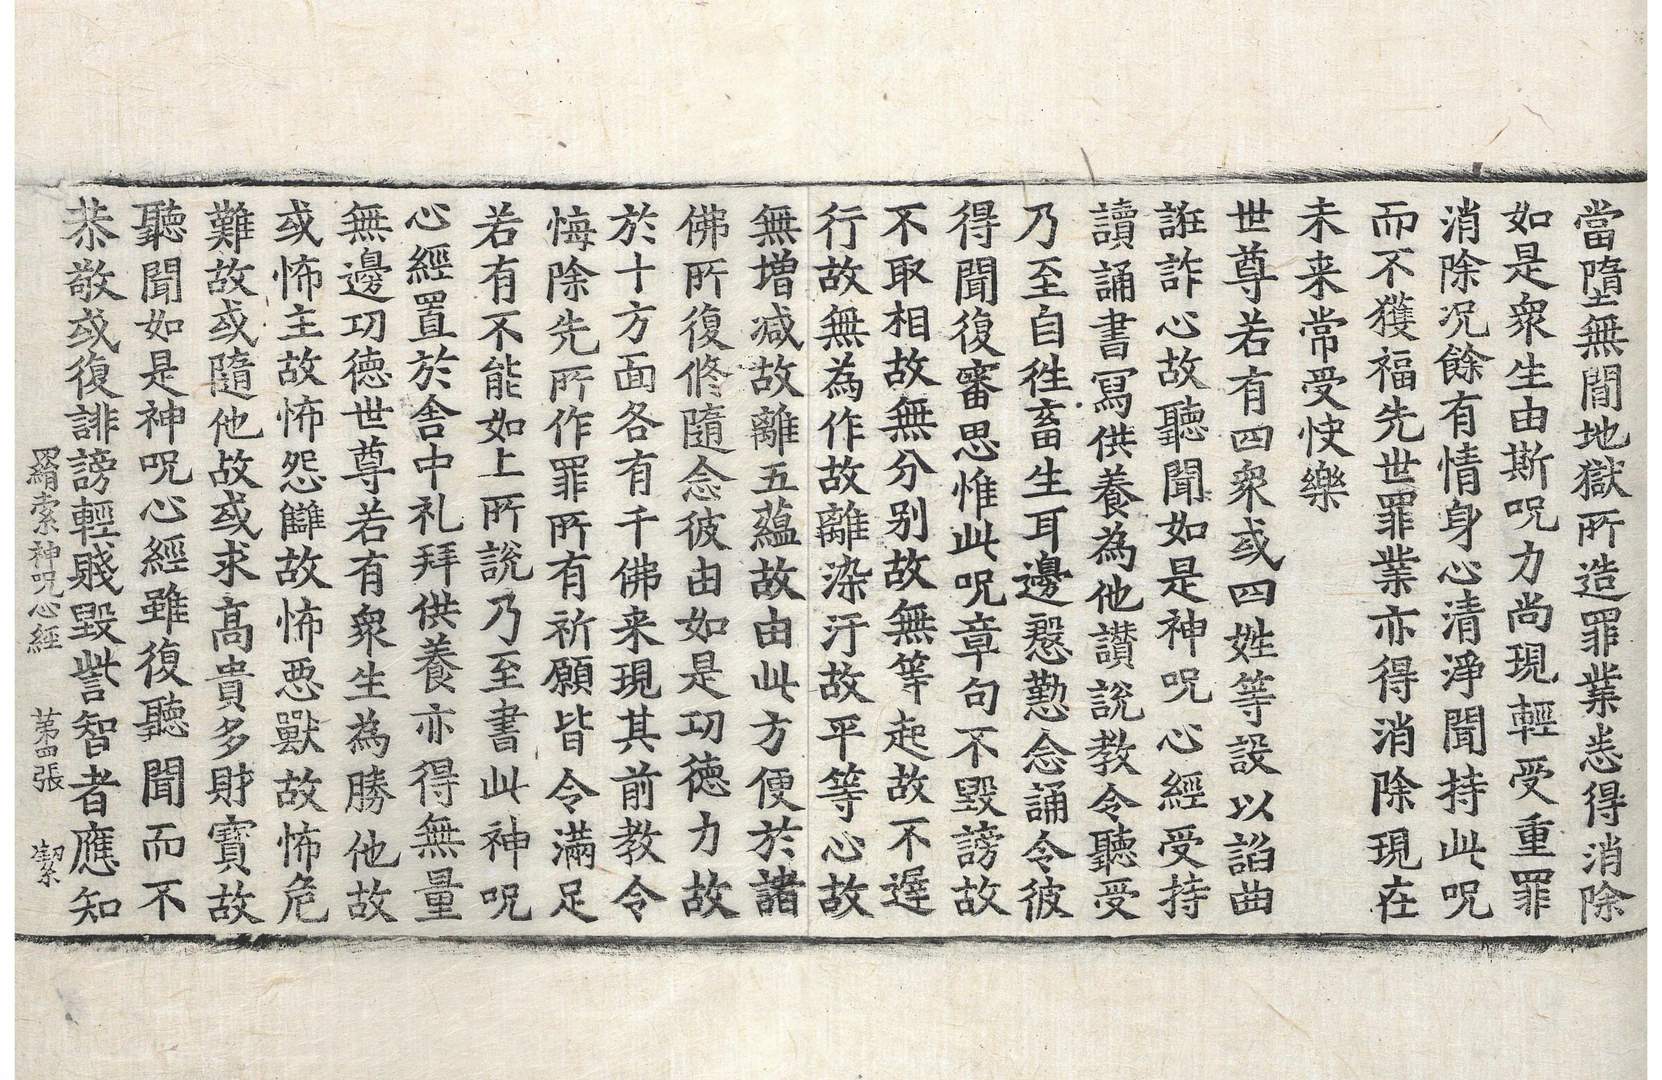 當墮無間地獄所造罪業悉得消除
如是衆生由斯呪力尚現輕受重罪
消除况餘有情身心清淨聞持此呪
而不獲福先世罪業亦得消除現在
未来常受快樂
世尊若有四衆或四姓等設以諂曲
誑詐心故聽聞如是神呪心經受持
讀誦書冩供養為他讃說教令聽受
乃至自往畜生耳邊慇懃念誦令彼
得聞復審思惟此呪章句不毀謗故
不取相故無分別故無等起故不遅
行故無為作故離染汙故平等心故
無增减故離五蘊故由此方便於諸
佛所復修隨念彼由如是功徳力故
於十方面各有千佛来現其前教令
悔除先所作罪所有祈願皆令滿足
若有不能如上所說乃至書此神呪
心經置於舎中礼拜供養亦得無量
無邊功德世尊若有衆生為勝他故
或怖主故怖怨讎故怖悪獸故怖危
難故或隨他故或求高貴多財寳故
聽聞如是神呪心經雖復聽聞而不
恭敬或復誹謗輕賤毀訾智者應知
羂索神呪心經　第四張　潔